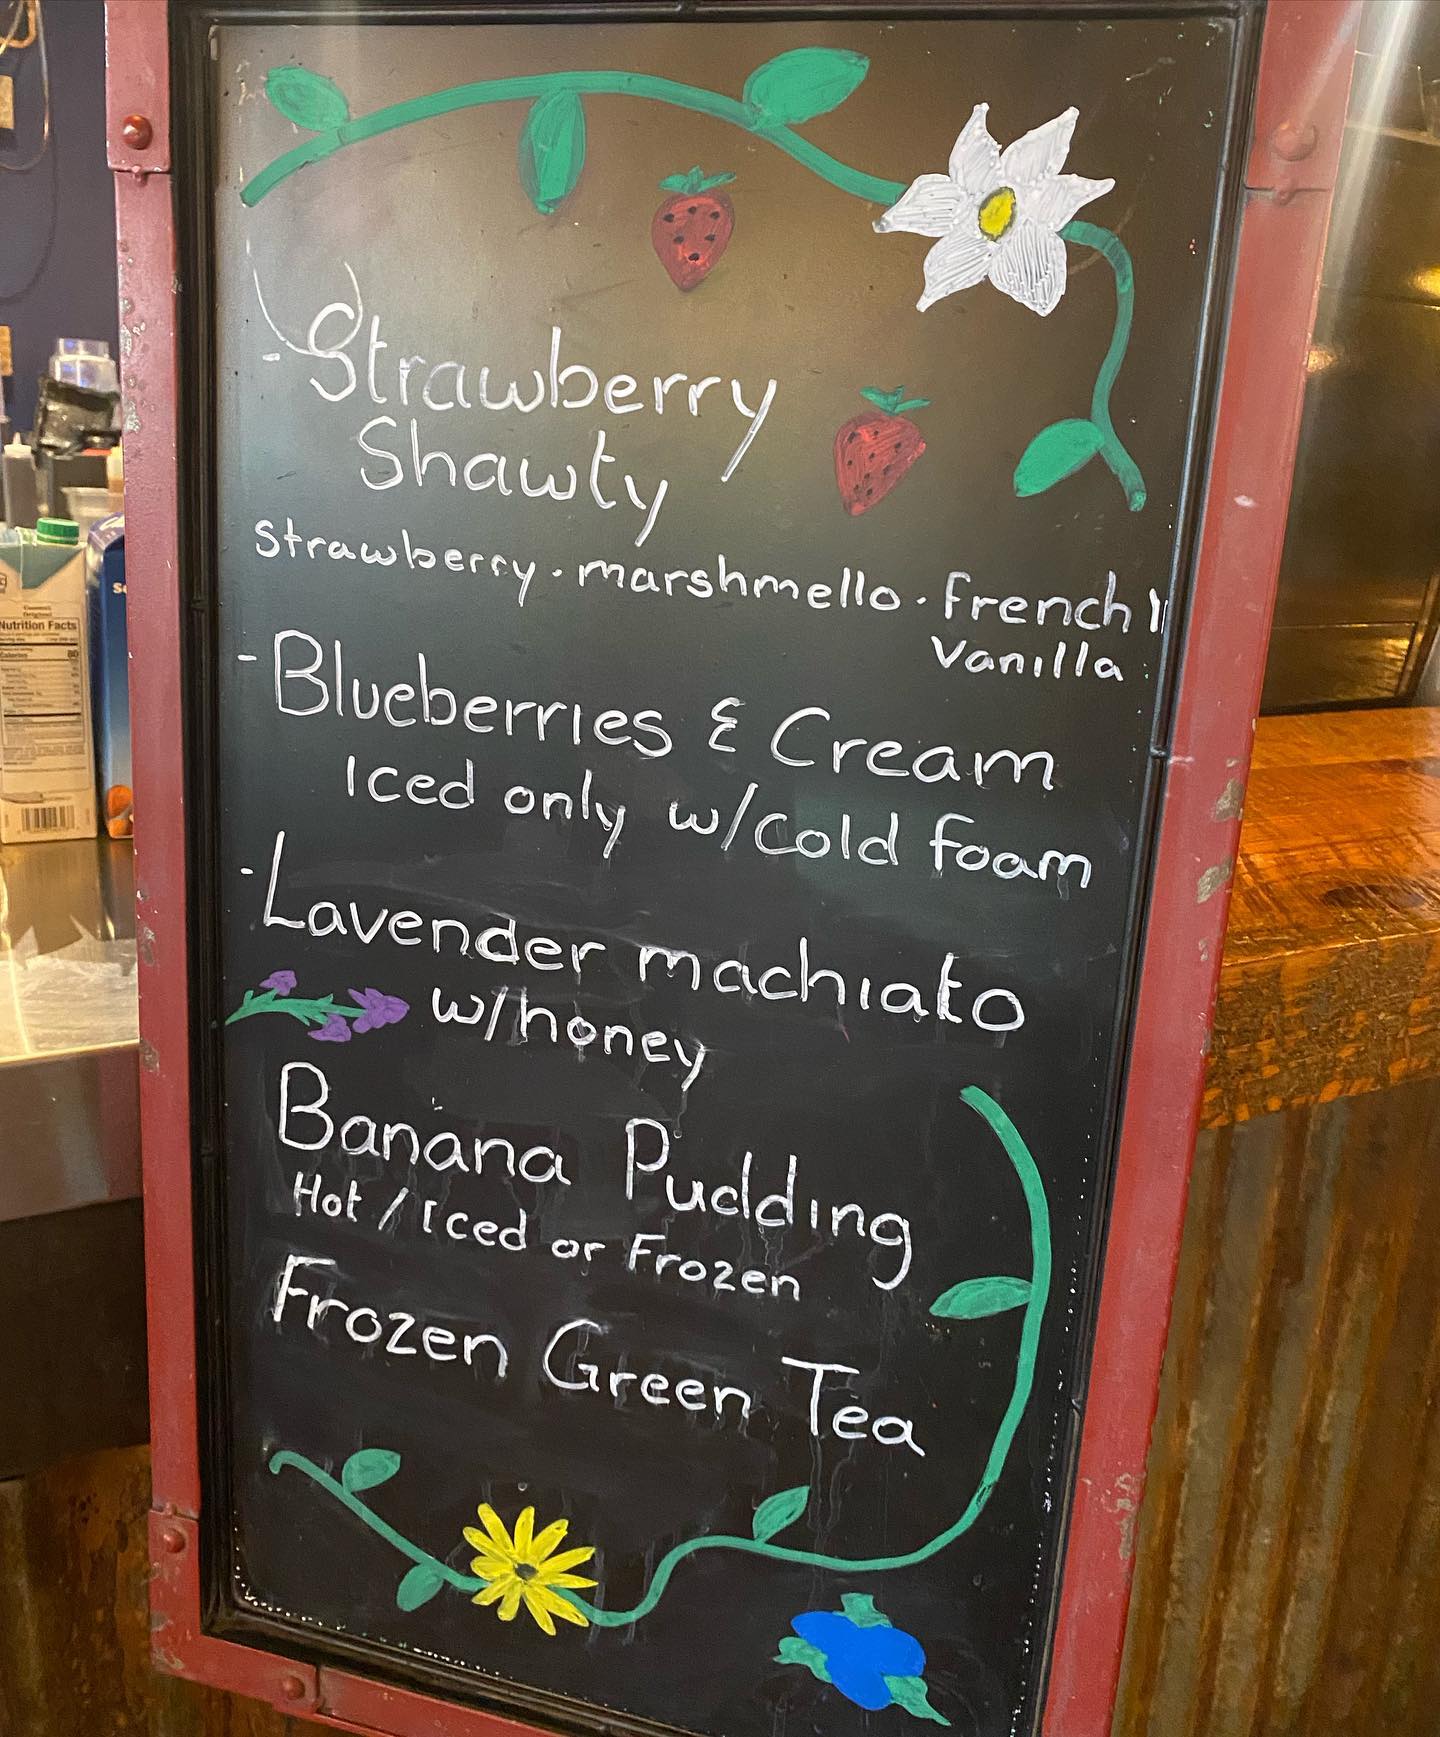 -Strawberry
Shawty
strawberry · marshmello · French
Vanilla
-Blueberries & Cream
Iced only w/cold foam
·Lavender machiato
w/honey
Banana Pudding
Hot / Iced or Frozen
Frozen Green Tea
Nutrition Facts
Calories 80